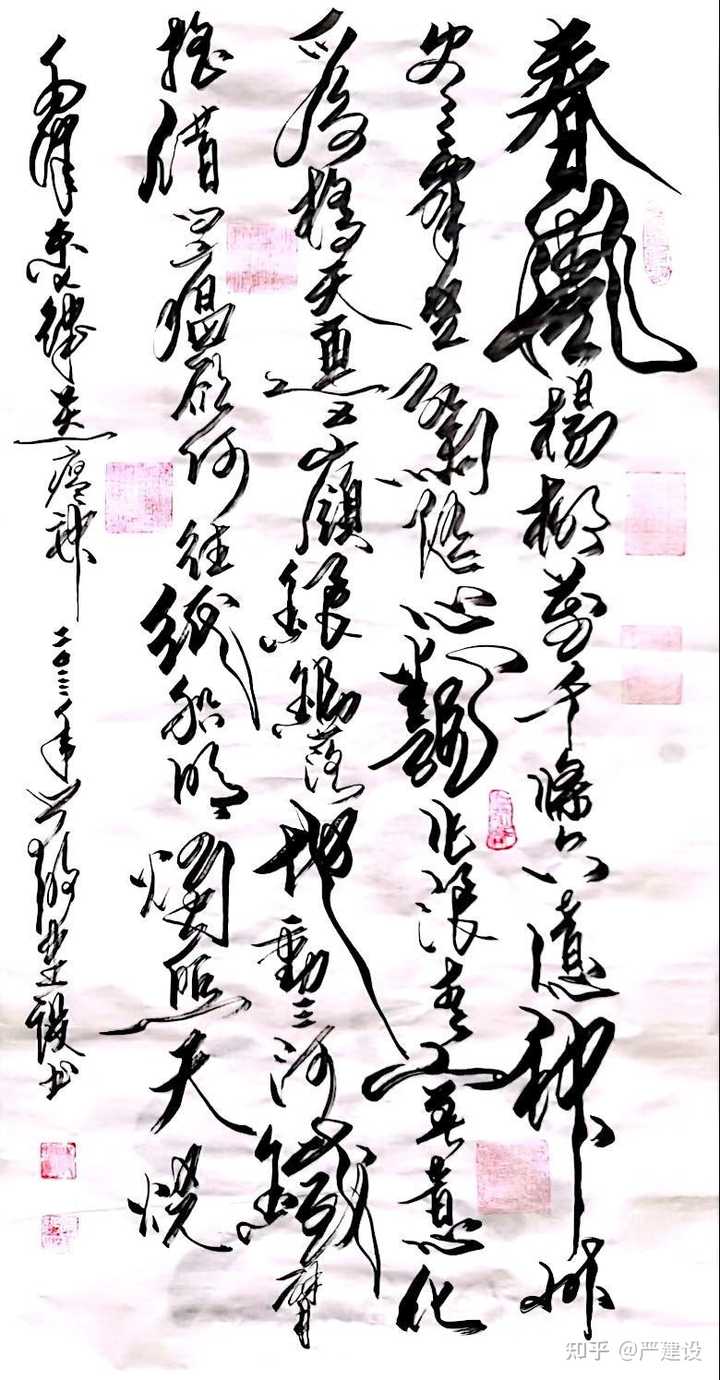 春風楊柳萬千條六億神州
尽舜堯紅雨随心翻作浪青山著意化
為橋天連五嶺銀鋤落地動三河鐵臂
搖借問瘟欲何往紙船明燭照天燒
毛澤東七律送瘟神 年 嚴建設書
知乎 @严建设